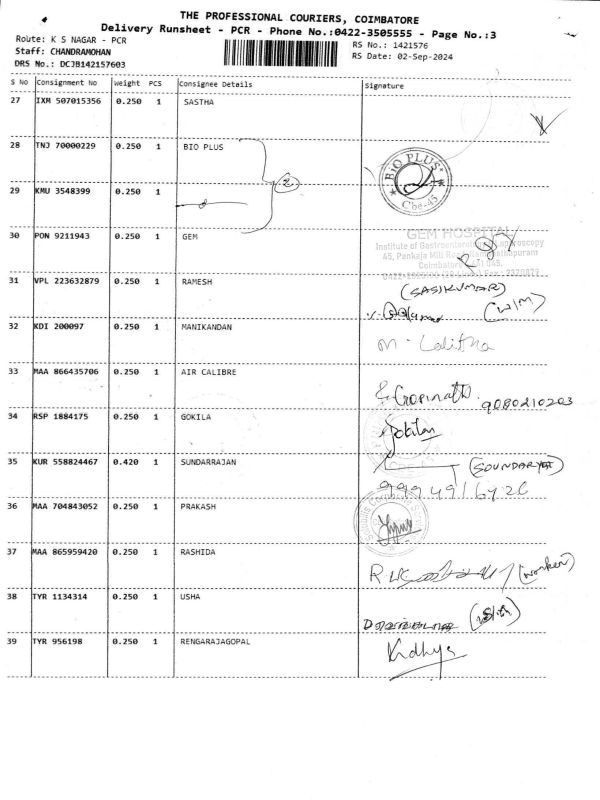 THE PROFESSIONAL COURIERS, COIMBATORE
Delivery Runsheet - PCR - Phone No.:0422-3505555 - Page No.:3
Route: K S NAGAR - PCR
RS No.: 1421576
Staff: CHANDRAMOHAN
RS Date: 02-Sep-2024
DRS No.: DCJB142157603
S No Consignment No Weight PCS Consignee Details Signature
27 IXM 507015356 0.250 1 SASTHA
28 TNJ 70000229 0.250 1 BIO PLUS
BIO PLUS
Cbe-45
2
29 KMU 3548399 0.250 1
30 PON 9211943 0.250 1 GEM
GEM HOSPITAL
Institute of Gastroenterology
45, Pankaja Mill Road, Ramanathapuram
Coimbatore
31 VPL 223632879 0.250 1 RAMESH
(SASIKUMAR)
(W/M)
32 KDI 200097 0.250 1 MANIKANDAN
M. Lalitha
33 MAA 866435706 0.250 1 AIR CALIBRE
Gopinath 9080210203
34 RSP 1884175 0.250 1 GOKILA
Gokila
35 KUR 558824467 0.420 1 SUNDARRAJAN
(SOUNDARYA)
36 MAA 704843052 0.250 1 PRAKASH
37 MAA 865959420 0.250 1 RASHIDA
(worker)
38 TYR 1134314 0.250 1 USHA
39 TYR 956198 0.250 1 RENGARAJAGOPAL
Vidhya